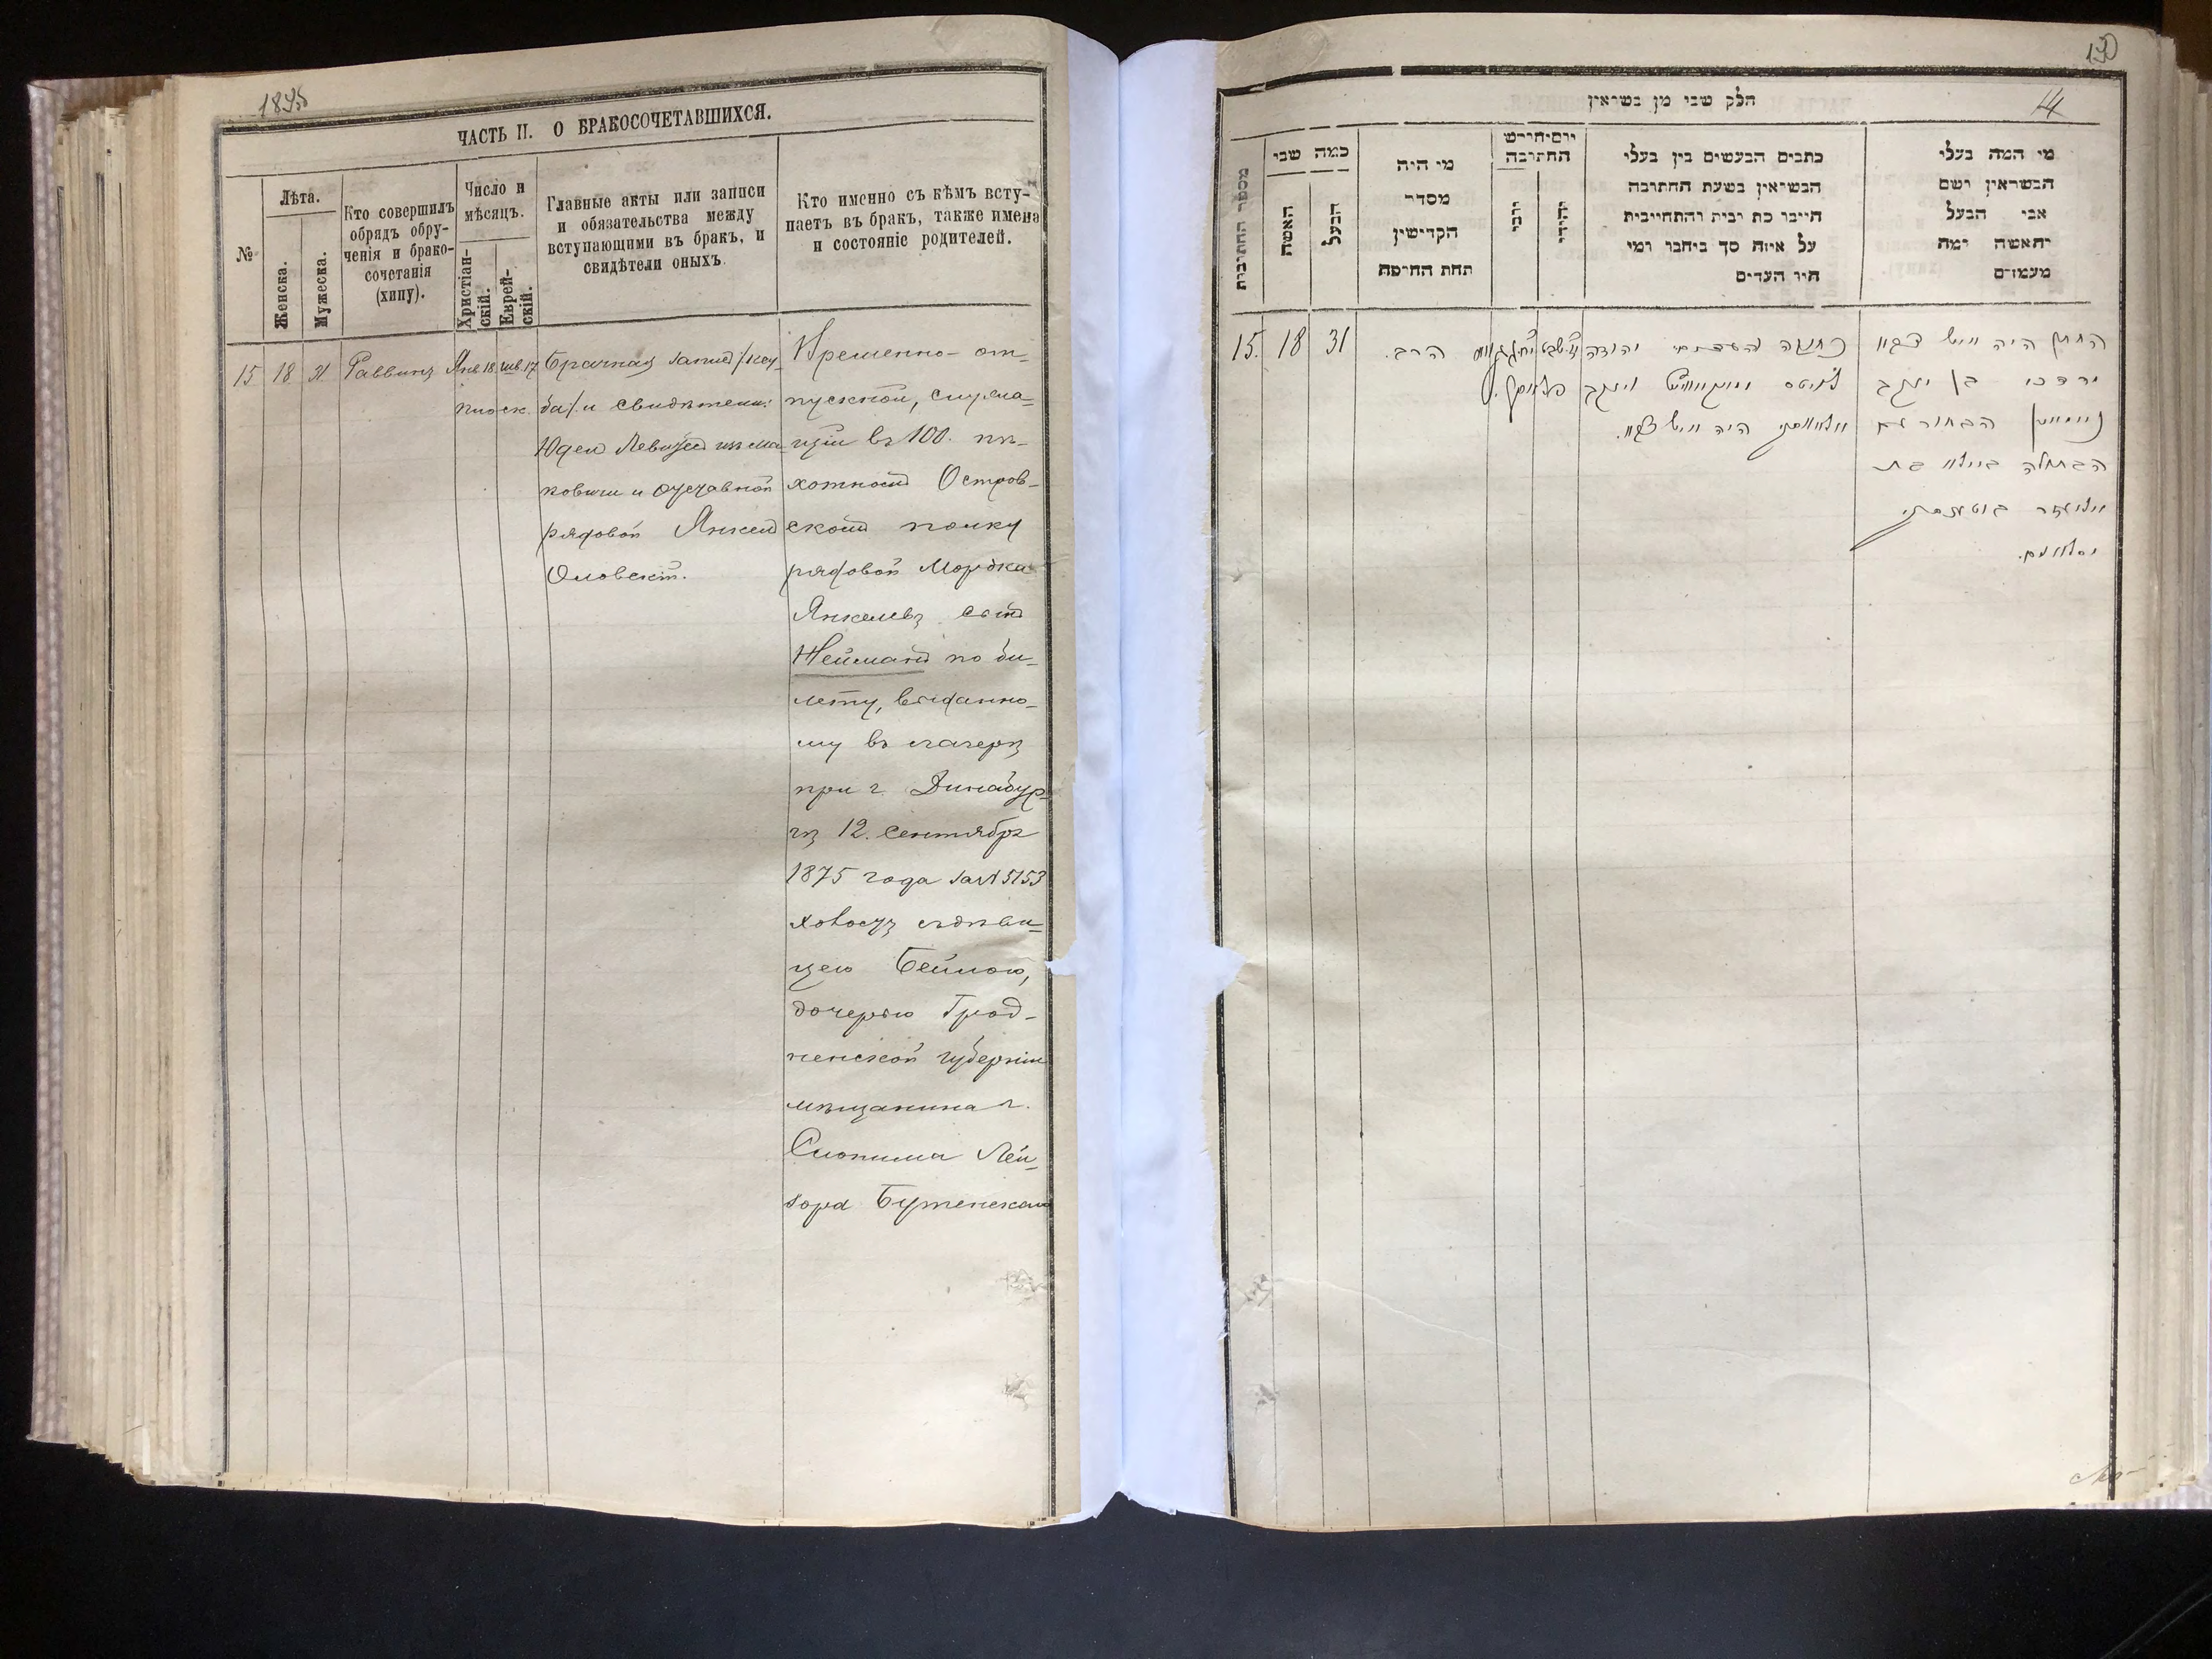 ЧАСТЬ II. О БРАКОСОЧЕТАВШИХСЯ.
№
Лѣта.
Женска.
Мужеска.
Кто совершилъ
обрядъ обру-
ченія и брако-
сочетанія
(хипу).
Число и
мѣсяцъ.
Христіан-
скій.
Еврей-
скій.
Главные акты или записи
и обязательства между
вступающими въ бракъ, и
свидѣтели оныхъ.
Кто именно съ кѣмъ всту-
паетъ въ бракъ, также имена
и состояніе родителей.
15
18
31
Раввинъ
Янв. 18
шв. 17
Брачная запись/кту
ба/ и свидѣтели:
Юдель
и
рядовой Янкель
Временно-от-
пускной,
въ 100. пѣ-
хотномъ Остров-
скомъ полку
рядовой Мордка
Янкелевъ сынъ
Нейманъ по би-
лету, выданно-
му въ лагерѣ
при г. Динабур-
гѣ 12. Сентября
1875 года за № 5153
холостъ съ дѣви-
цею Бейлою,
дочерью Грод-
ненской губерніи
мѣщанина г.
Слонима Лей-
зора Бутенскаго
130
14
חלק שני מן נשואין
מספר החתונות
כמה שני
האשה
הבעל
מי היה
מסדר
הקדישין
תחת החופה
יום וחודש
החתונה
נוצרי
יהודי
כתבים הנעשים בין בעלי
הנשואין בשעת החתונה
היינו כת ובית והתחייבות
על איזה סך ביחבר ומי
היו העדים
מי המה בעלי
הנשואין ושם
אבי הבעל
והאשה ומה
מעמדם
15.
18
31
הרב.
יהודה
החתן היה איש צבא
מרדכי בן יעקב
היה איש צבא.
ניימאן הבחור עם
הבתולה ביילא בת